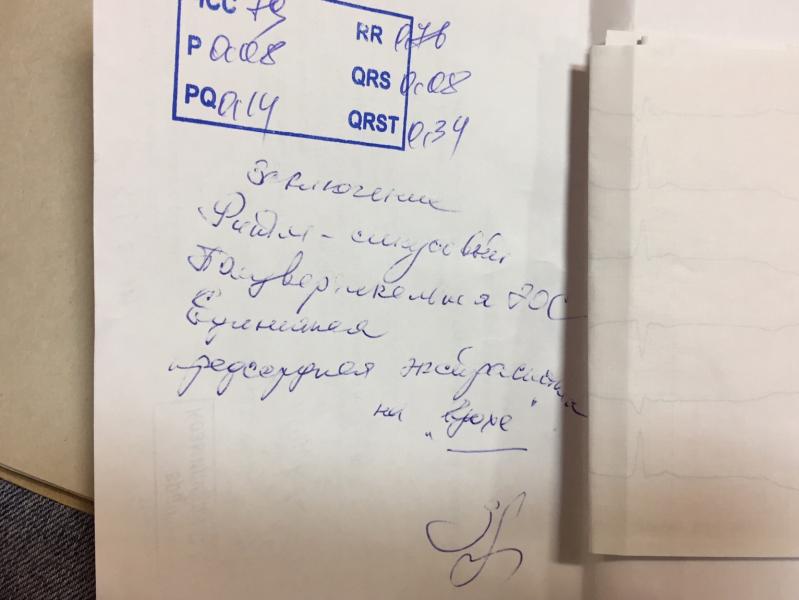 ЧСС 79 RR 0,76
P 0,08 QRS 0,08
PQ 0,14 QRST 0,34
Заключение
Ритм - синусовый
Полувертикальная ЭОС
Единичная
предсердная экстрасистола
на "вдохе"